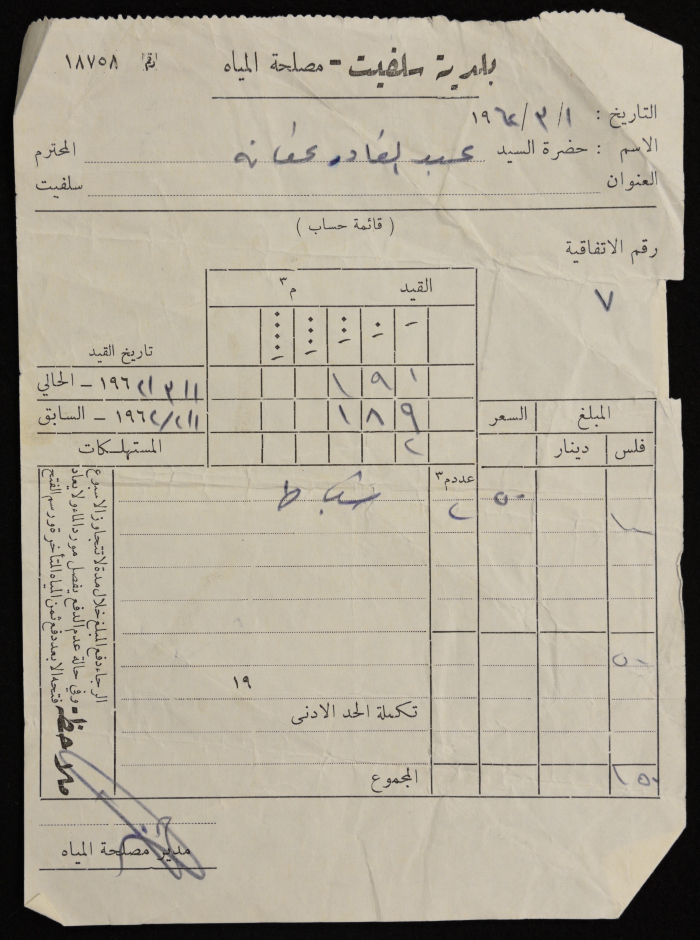 بلدية سلفيت - مصلحة المياه
رقم ١٨٧٥٨
التاريخ : ١ / ٣ / ١٩٦٤
الاسم : حضرة السيد عبد القادر عفانه المحترم
العنوان سلفيت
( قائمة حساب )
رقم الاتفاقية
٧
القيد م٣
تاريخ القيد
١٩٦ - الحالي ١٩١
١٩٦ - السابق ١٨٩
المستهلكات ٢
المبلغ السعر
فلس دينار
عدد م٣
شباط ٢ ٥٠ ١٠٠
٥٠
١٩
تكملة الحد الادنى
المجموع ١٥٠
ملاحظة - الرجاء دفع المبلغ خلال مدة لا تتجاوز الاسبوع
وفي حالة عدم الدفع يفصل مورد الماء ولا يعاد
فتحه الا بعد دفع ثمن المياه المتأخرة ورسم الفتح
مدير مصلحة المياه